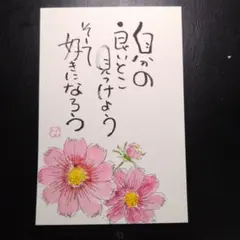 自分の
良いとこ
見つけよう
そして
好きになろう